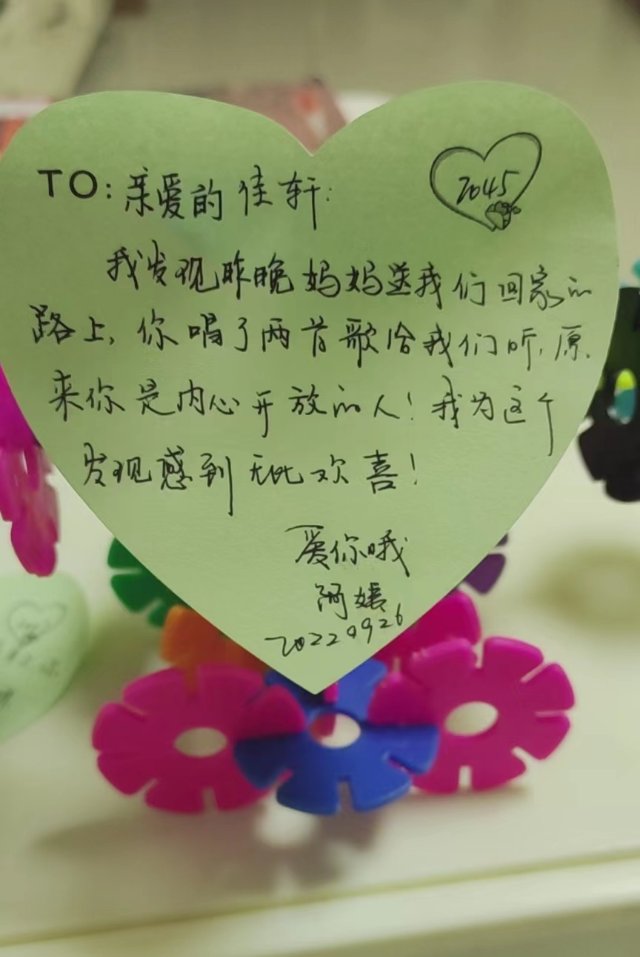 TO:亲爱的佳轩:
2045
我发现昨晚妈妈送我们回家的
路上,你唱了两首歌给我们听,原
来你是内心开放的人!我为这个
发现感到无比欢喜!
爱你哦
阿嬉
20220926